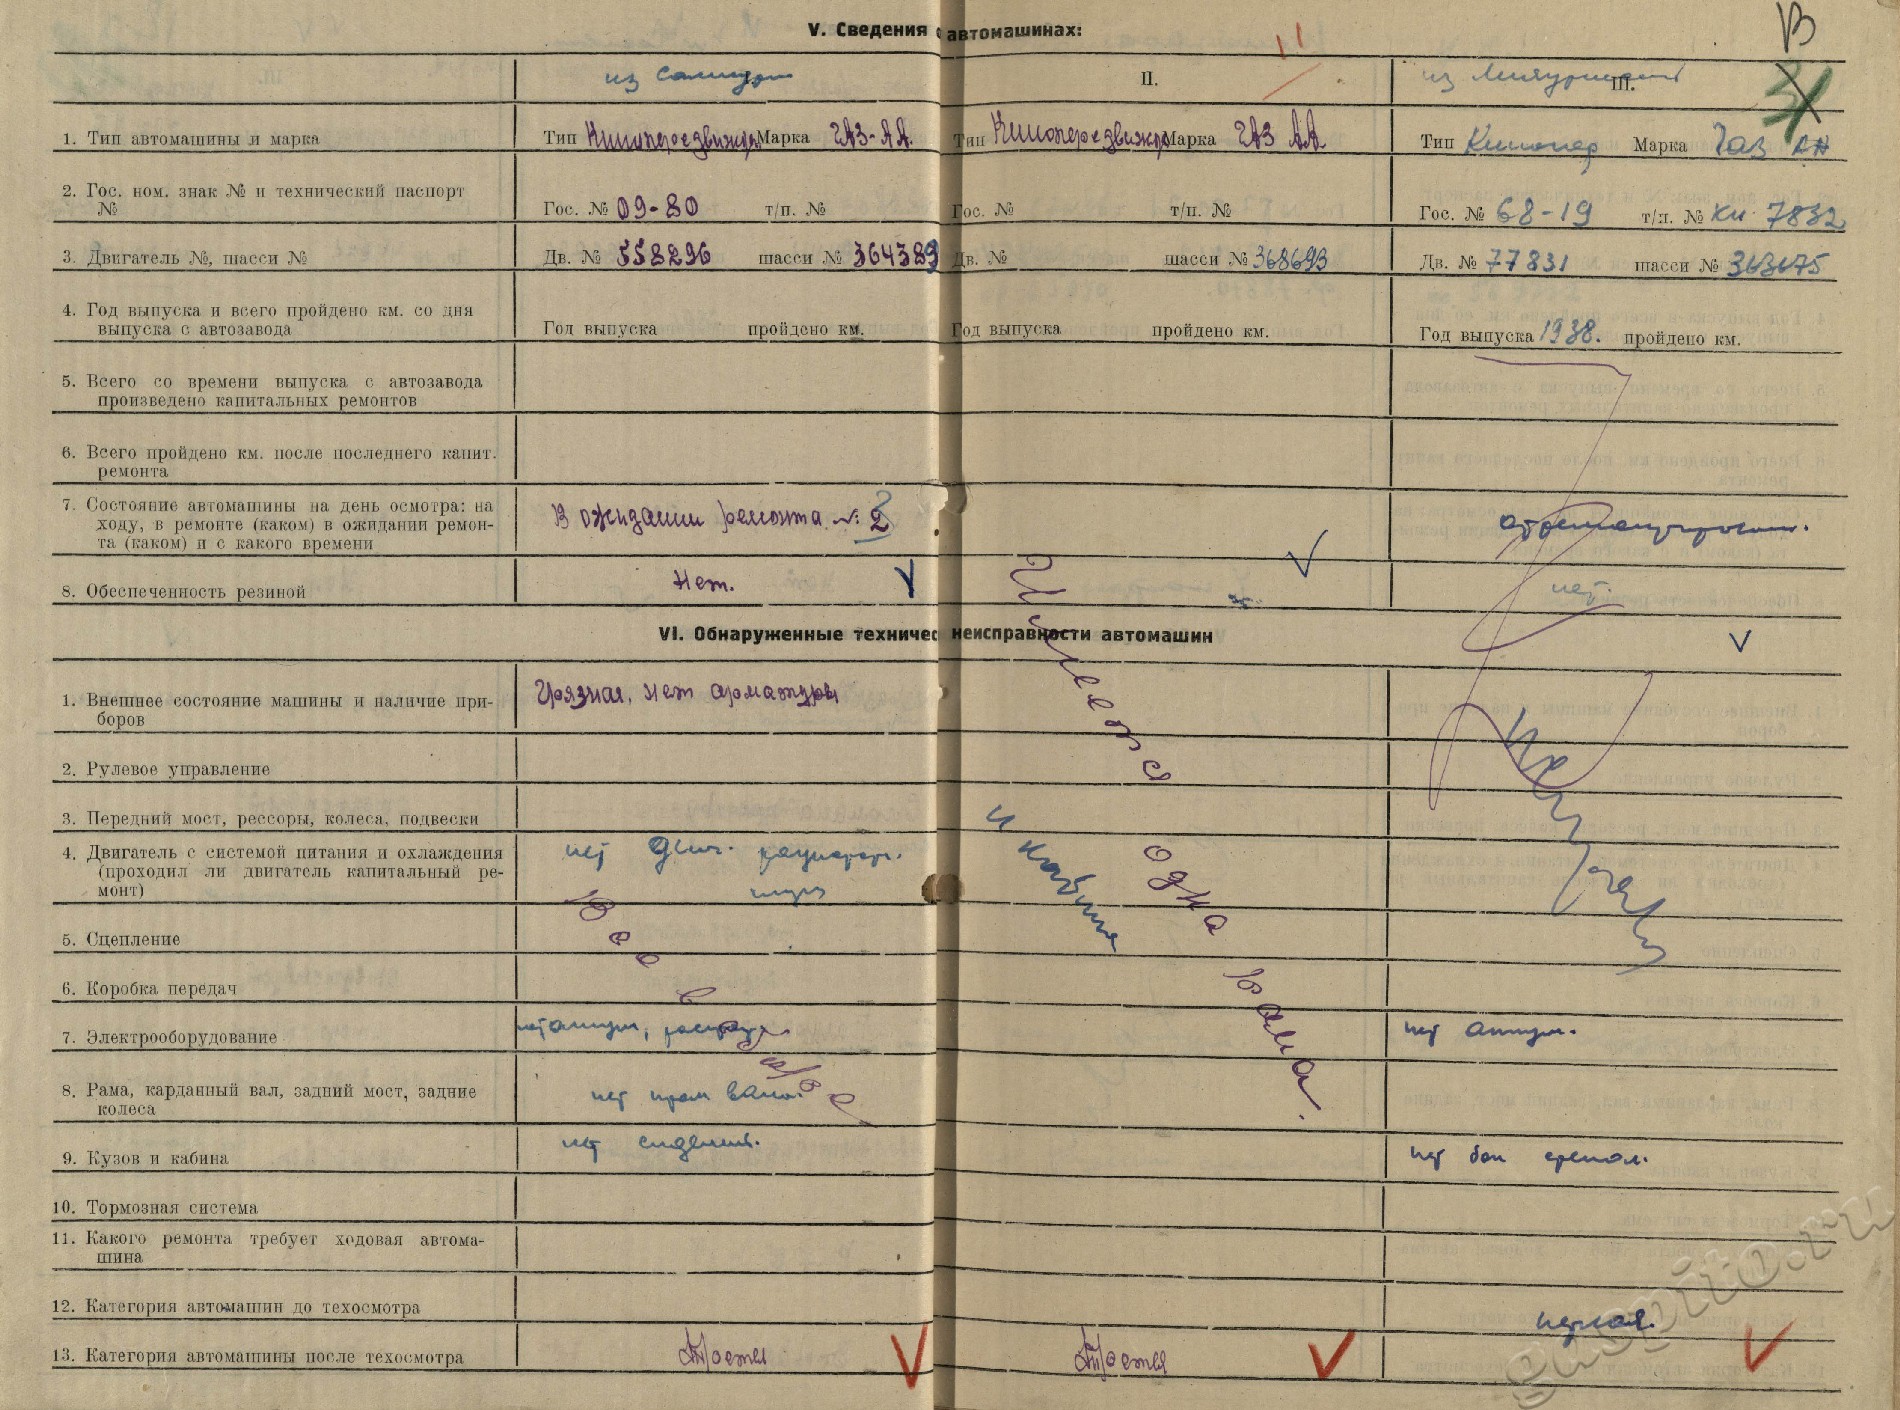 V. Сведения о автомашинах:
В
из II. из III.
31
1. Тип автомашины и марка Тип Кинопередвижка Марка ГАЗ-АА. Тип Кинопередвижка Марка ГАЗ АА Тип Кинопер Марка Газ АА
2. Гос. ном. знак № и технический паспорт Гос. № 09-80 т/п. № Гос. № т/п. № Гос. № 68-19 т/п. № КИ 7832
№
3. Двигатель №, шасси № Дв. № 558296 шасси № 364389 Дв. № шасси № 368693 Дв. № 77831 шасси № 363175
4. Год выпуска и всего пройдено км. со дня
выпуска с автозавода Год выпуска пройдено км. Год выпуска пройдено км. Год выпуска 1938. пройдено км.
5. Всего со времени выпуска с автозавода
произведено капитальных ремонтов
6. Всего пройдено км. после последнего капит.
ремонта
7. Состояние автомашины на день осмотра: на
ходу, в ремонте (каком) в ожидании ремон- В ожидании ремонта №
та (каком) и с какого времени
8. Обеспеченность резиной Нет. нет.
VI. Обнаруженные техничес неисправности автомашин
1. Внешнее состояние машины и наличие при- Грязная, нет арматуры
боров
Имеется одна рама.
и кабина
2. Рулевое управление
3. Передний мост, рессоры, колеса, подвески
4. Двигатель с системой питания и охлаждения нет
(проходил ли двигатель капитальный ре-
монт)
5. Сцепление
6. Коробка передач
7. Электрооборудование нет
8. Рама, карданный вал, задний мост, задние нет
колеса
9. Кузов и кабина нет сидения. нет
10. Тормозная система
11. Какого ремонта требует ходовая автома-
шина
12. Категория автомашин до техосмотра
13. Категория автомашины после техосмотра Третья Третья
gusnito.ru